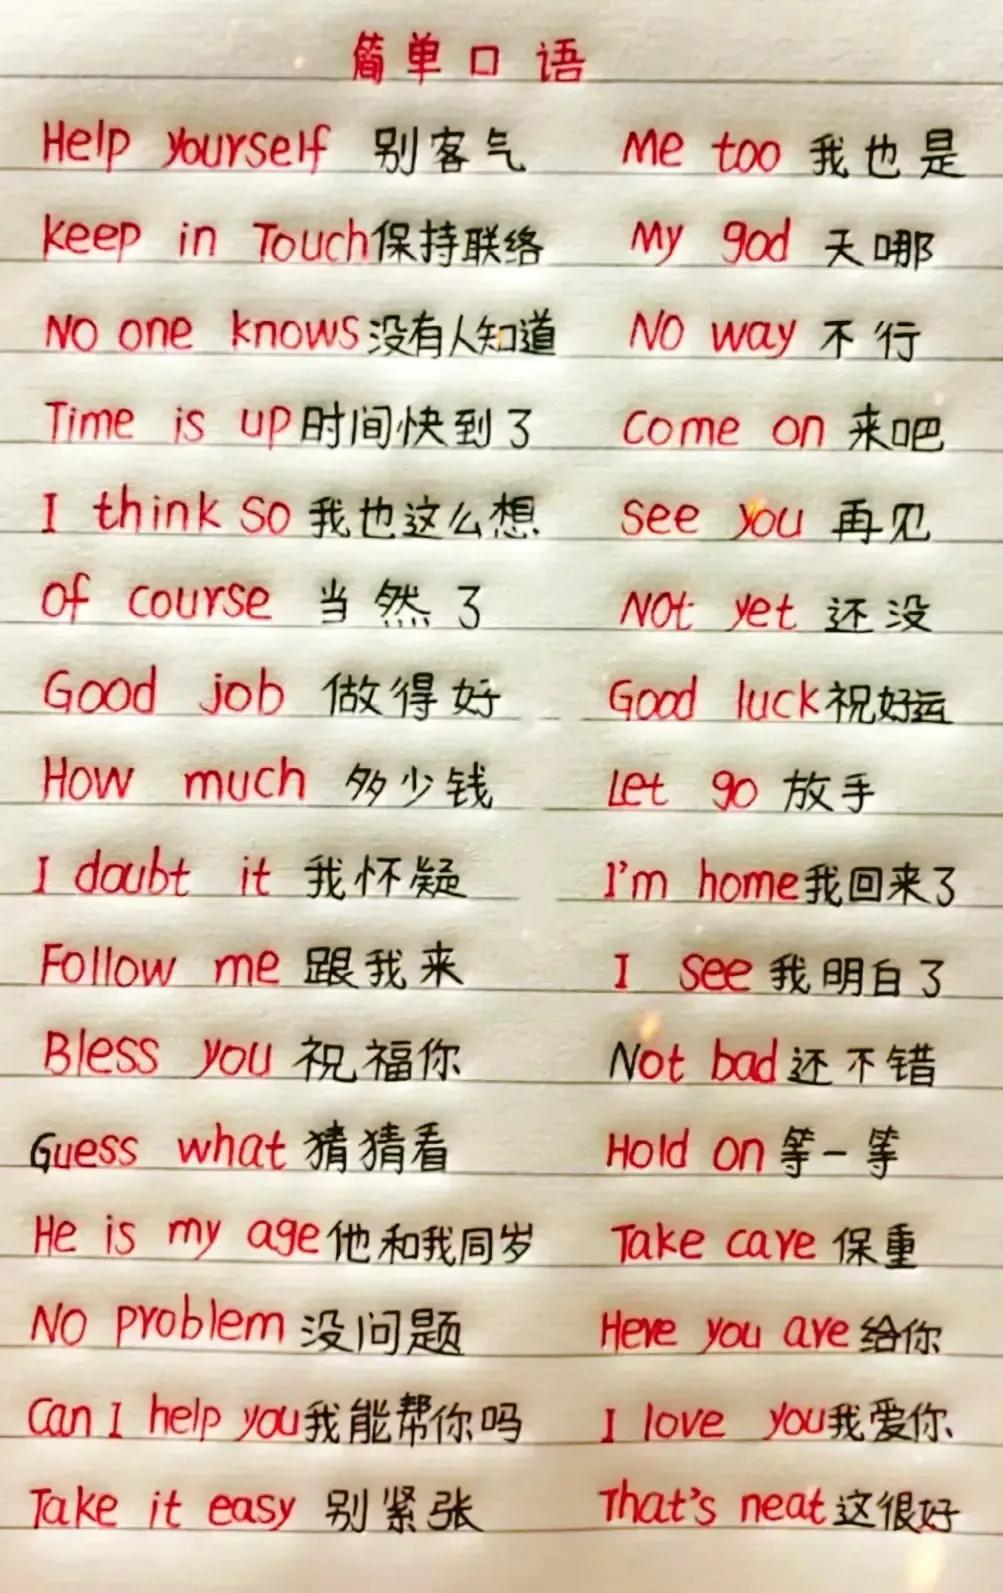 简单口语
Help yourself 别客气
Me too 我也是
keep in Touch 保持联络
My god 天哪
No one knows 没有人知道
No way 不行
Time is up 时间快到了
Come on 来吧
I think so 我也这么想
See you 再见
Of course 当然了
Not yet 还没
Good job 做得好
Good luck 祝好运
How much 多少钱
Let go 放手
I doubt it 我怀疑
I'm home 我回来了
Follow me 跟我来
I see 我明白了
Bless you 祝福你
Not bad 还不错
Guess what 猜猜看
Hold on 等一等
He is my age 他和我同岁
Take care 保重
No problem 没问题
Here you are 给你
Can I help you 我能帮你吗
I love you 我爱你
Take it easy 别紧张
That's neat 这很好